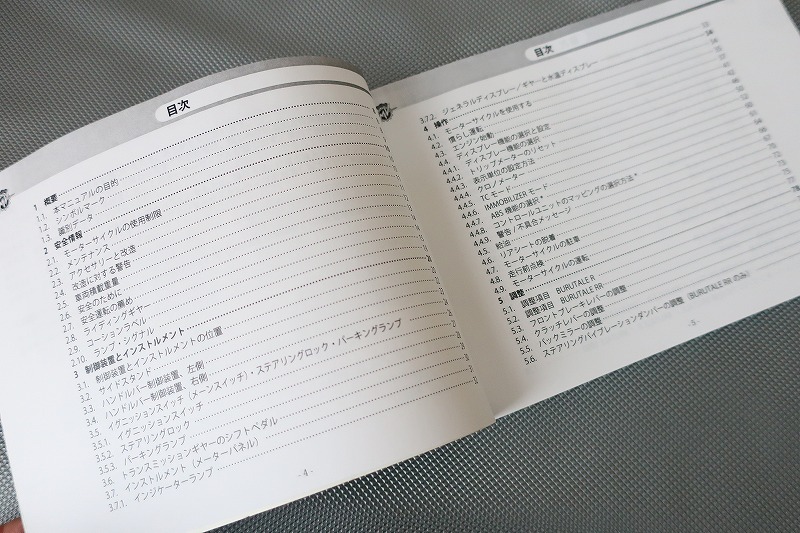 目次
1 概要
1.1. 本マニュアルの目的
1.2. シンボルマーク
1.3. 識別データ
2 安全情報
2.1. モーターサイクルの使用制限
2.2. メンテナンス
2.3. アクセサリーと改造
2.4. 改造に対する警告
2.5. 車両積載重量
2.6. 安全のために
2.7. 安全運転の薦め
2.8. ライディングギヤー
2.9. コーションラベル
2.10. ランプ・シグナル
3 制御装置とインストルメント
3.1. 制御装置とインストルメントの位置
3.2. サイドスタンド
3.3. ハンドルバー制御装置、左側
3.4. ハンドルバー制御装置、右側
3.5. イグニッションスイッチ（メーンスイッチ）・ステアリングロック・パーキングランプ
3.5.1. イグニッションスイッチ
3.5.2. ステアリングロック
3.5.3. パーキングランプ
3.6. トランスミッションギヤーのシフトペダル
3.7. インストルメント（メーターパネル）
3.7.1. インジケーターランプ
- 4 -
目次
3.7.2. ジェネラルディスプレー / ギヤーと水温ディスプレー
4 操作
4.1. モーターサイクルを使用する
4.2. 慣らし運転
4.3. エンジン始動
4.4. ディスプレー機能の選択と設定
4.4.1. ディスプレー機能の選択
4.4.2. トリップメーターのリセット
4.4.3. 表示単位の設定方法
4.4.4. クロノメーター
4.4.5. TC モード
4.4.6. IMMOBILIZER モード
4.4.7. ABS 機能の選択 *
4.4.8. コントロールユニットのマッピングの選択方法 *
4.4.9. 警告 / 不具合メッセージ
4.5. 給油
4.6. リアシートの脱着
4.7. モーターサイクルの駐車
4.8. 走行前点検
4.9. モーターサイクルの運転
5 調整
5.1. 調整項目 BURUTALE R
5.2. 調整項目 BURUTALE RR
5.3. フロントブレーキレバーの調整
5.4. クラッチレバーの調整
5.5. バックミラーの調整
5.6. ステアリングバイブレーションダンパーの調整 (BURUTALE RR のみ)
- 5 -